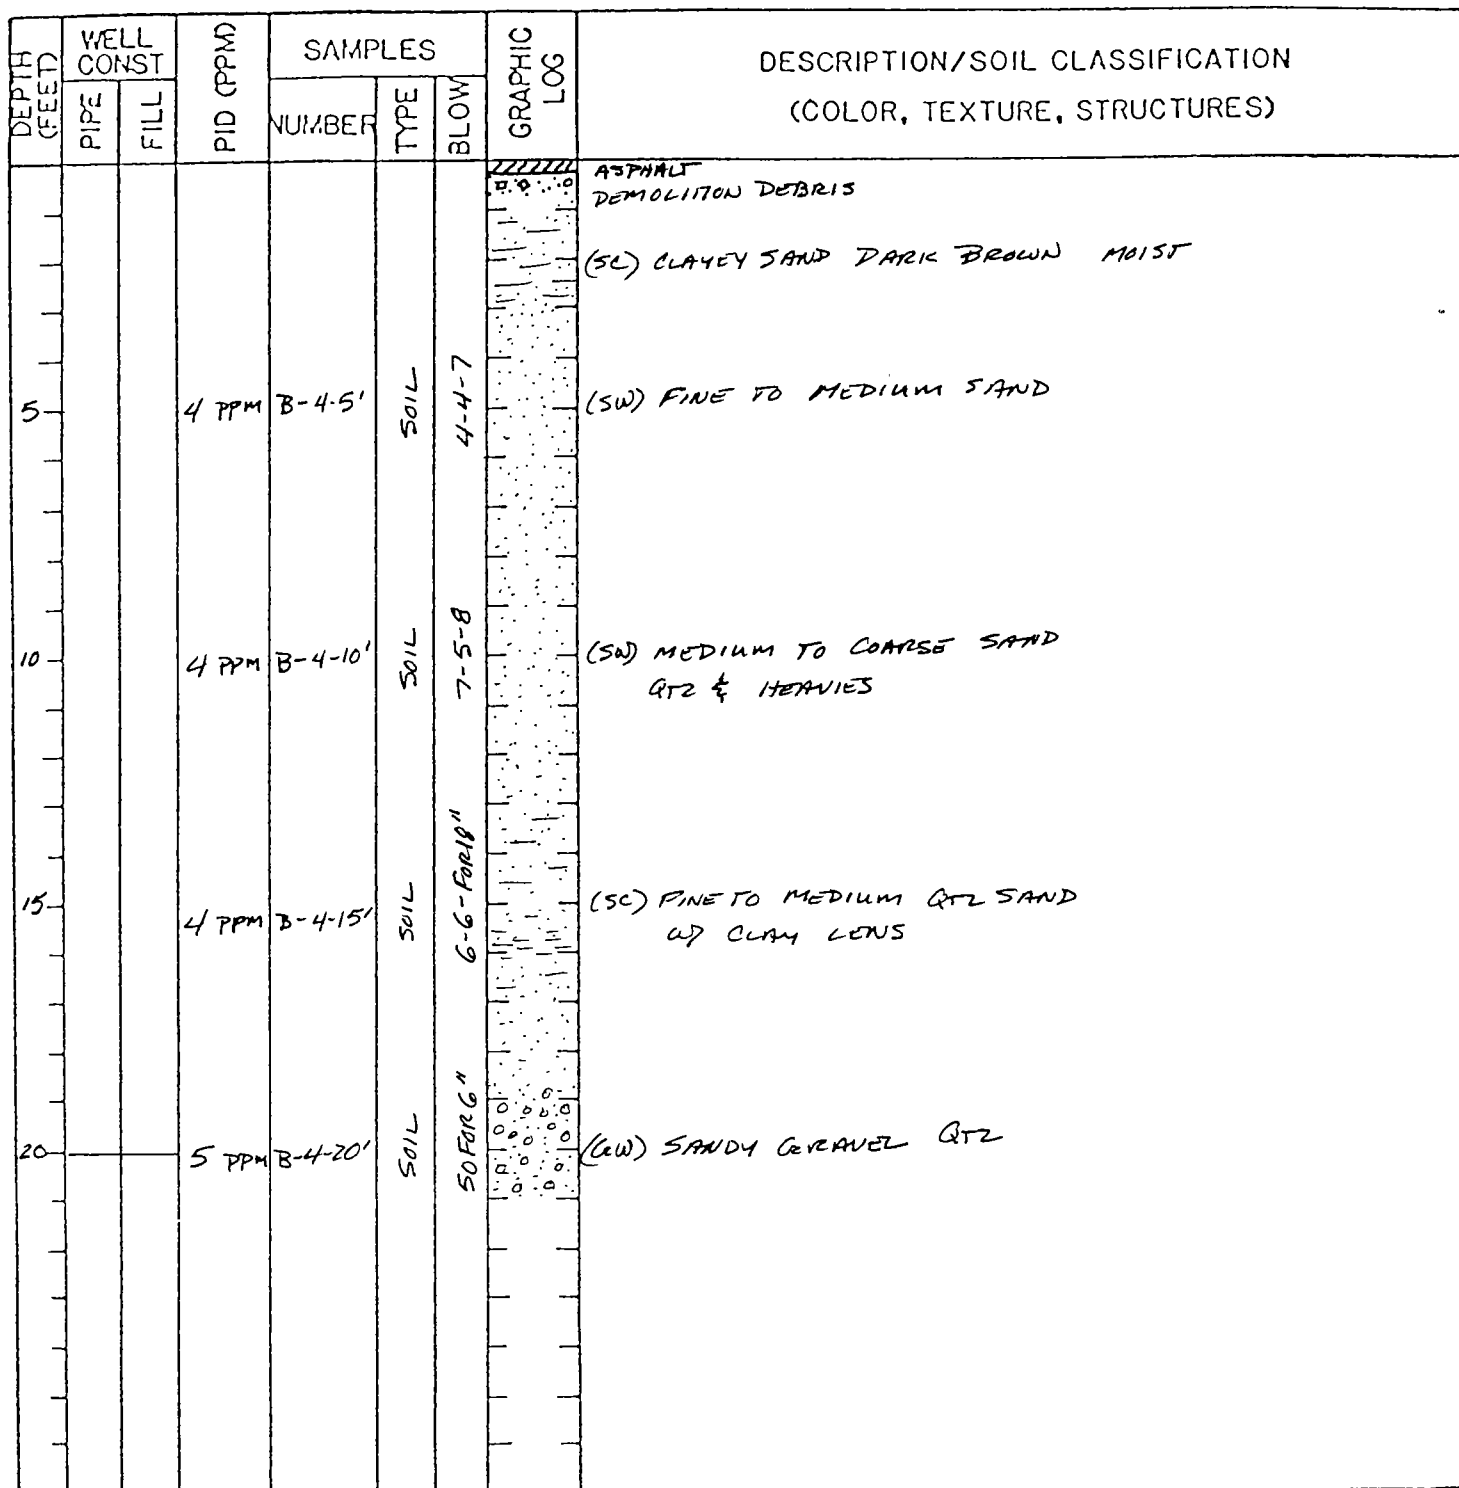 DEPTH (FEET)
WELL CONST
PIPE
FILL
PID (PPM)
SAMPLES
NUMBER
TYPE
BLOW
GRAPHIC LOG
DESCRIPTION/SOIL CLASSIFICATION
(COLOR, TEXTURE, STRUCTURES)
ASPHALT
DEMOLITION DEBRIS
(SC) CLAYEY SAND DARK BROWN MOIST
5 4 PPM B-4-5' SOIL 4-4-7 (SW) FINE TO MEDIUM SAND
10 4 PPM B-4-10' SOIL 7-5-8 (SW) MEDIUM TO COARSE SAND
QTZ & HEAVIES
15 4 PPM B-4-15' SOIL 6-6-FOR18" (SC) FINE TO MEDIUM QTZ SAND
W/ CLAY LENS
20 5 PPM B-4-20' SOIL 50 FOR 6" (GW) SANDY GRAVEL QTZ